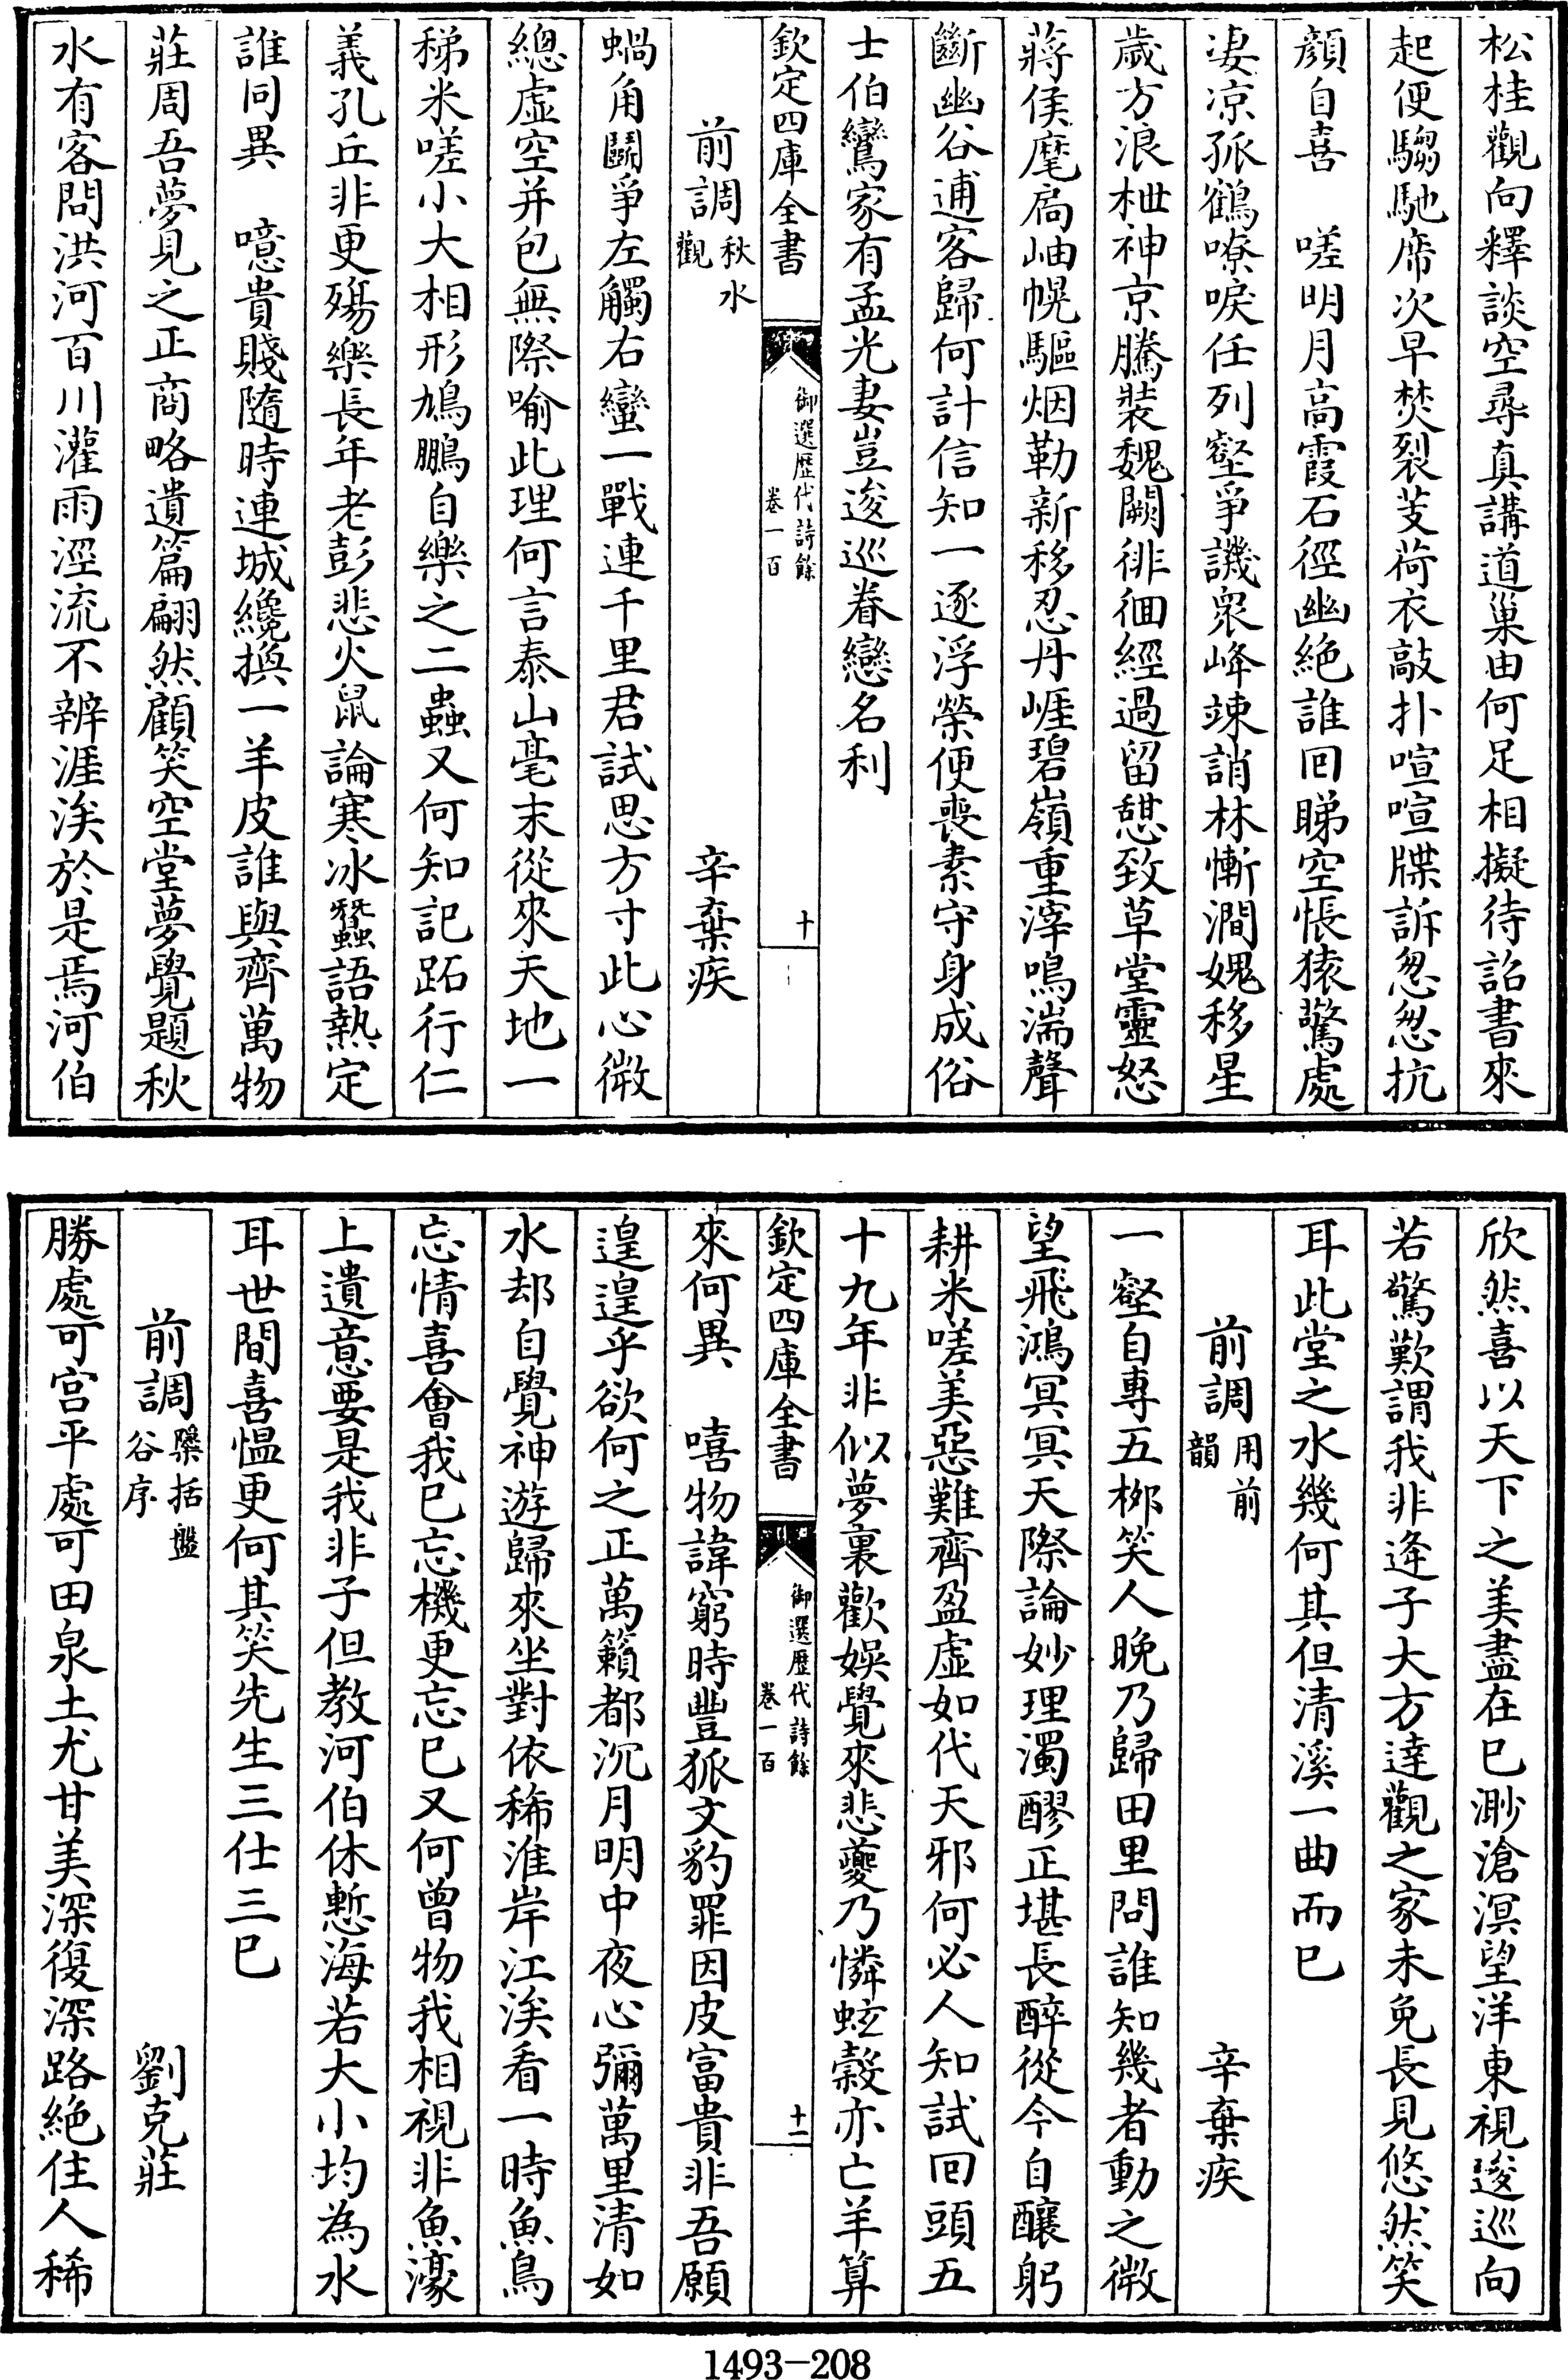 松桂觀向釋談空尋真講道巢由何足相擬待詔書來
起便騶馳席次早焚裂芰荷衣敲扑喧喧牒訴怱怱抗
顏自喜　嗟明月高霞石徑幽絶誰囘睇空悵猿驚處
凄凉孤鶴嘹唳任列壑爭譏衆峰竦誚林慚澗媿移星
歲方浪枻神京騰裝魏闕徘徊經過留憇致草堂靈怒
蔣侯麾扃岫幌驅烟勒新移忍丹崖碧嶺重滓鳴湍聲
斷幽谷逋客歸何計信知一逐浮榮便喪素守身成俗
士伯鸞家有孟光妻豈逡巡眷戀名利
欽定四庫全書
御選歷代詩餘
卷一百
十
前調秋水觀
辛棄疾
蝸角鬭爭左觸右蠻一戰連千里君試思方寸此心微
總虛空并包無際喻此理何言泰山毫末從來天地一
稊米嗟小大相形鳩鵬自樂之二蟲又何知記跖行仁
義孔丘非更殤樂長年老彭悲火鼠論寒冰蠶語熱定
誰同異　噫貴賤隨時連城纔換一羊皮誰與齊萬物
莊周吾夢見之正商略遺篇翩然顧笑空堂夢覺題秋
水有客問洪河百川灌雨涇流不辨涯涘於是焉河伯
欣然喜以天下之美盡在已渺滄溟望洋東視逡巡向
若驚歎謂我非逄子大方達觀之家未免長見悠然笑
耳此堂之水幾何其但清溪一曲而已
前調用前韻
辛棄疾
一壑自專五栁笑人晚乃歸田里問誰知幾者動之微
望飛鴻冥冥天際論妙理濁醪正堪長醉從今自釀躬
耕米嗟美惡難齊盈虛如代天邪何必人知試回頭五
十九年非似夢裏歡娛覺來悲夔乃憐蚿穀亦亡羊算
欽定四庫全書
御選歷代詩餘
卷一百
十一
來何異　嘻物諱窮時豐狐文豹罪因皮富貴非吾願
遑遑乎欲何之正萬籟都沉月明中夜心彌萬里清如
水却自覺神遊歸來坐對依稀淮岸江涘看一時魚鳥
忘情喜會我已忘機更忘已又何曾物我相視非魚濠
上遺意要是我非子但教河伯休慙海若大小均為水
耳世間喜慍更何其笑先生三仕三已
前調檃括盤谷序
劉克莊
勝處可宫平處可田泉土尤甘美深復深路絶住人稀
1493-208